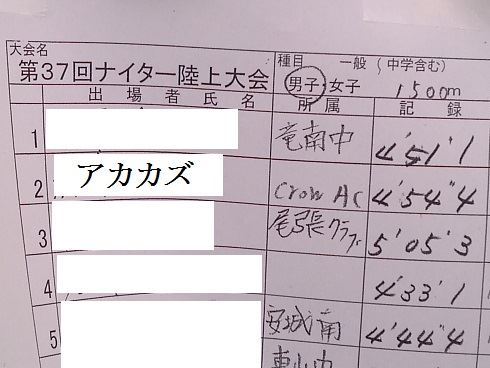 大会名 第37回ナイター陸上大会 種目 一般(中学含む) 男子 女子 1500m
出場者氏名 所属 記録
1 竜南中 4'51"1
2 アカカズ Crow AC 4'54"4
3 尾張クラブ 5'05"3
4 4'33"1
5 安城南 4'44"4